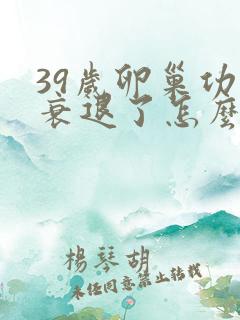 39歲卵巢功
衰退了怎麼
楊琴胡
未經同意禁止轉載